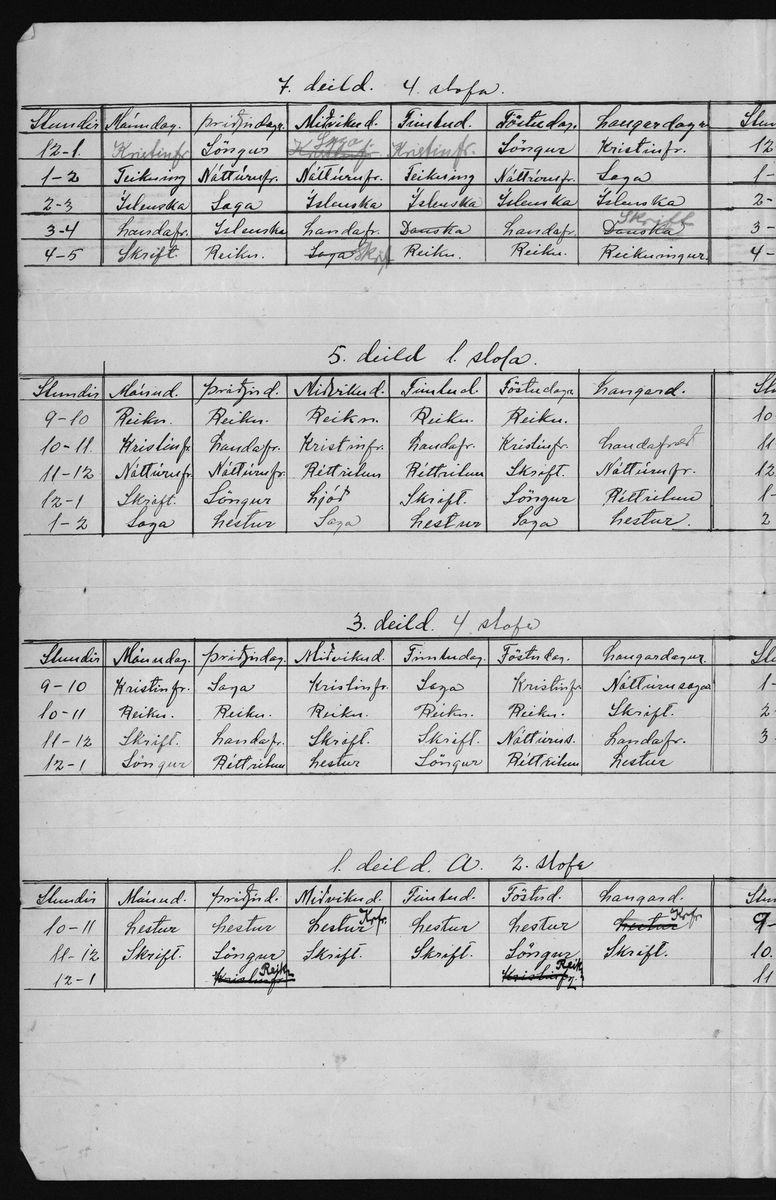 7. deild. 4. stofa.
Stundir Mánudag. Þriðjudagr. Miðvikud. Fimtud. Föstudag. Laugardagur Stun
12-1. Kristinfr. Söngur Saga Kristinfr. Söngur Kristinfr. 12
1-2 Teikning Náttúrufr. Náttúrufr. Teikning Náttúrufr. Saga 1-
2-3 Íslenska Saga Íslenska Íslenska Íslenska Íslenska 2-
3-4 Landafr. Íslenska Landafr. Danska Landafr. Danska Skrift 3-
4-5 Skrift. Reikn. Saga Skrift Reikn. Reikn. Reikningur. 4-
5. deild 1. stofa.
Stundir Mánud. Þriðjud. Miðvikud. Fimtud. Föstudagr Laugard. Stu
9-10 Reikn. Reikn. Reikn. Reikn. Reikn. 10
10-11. Kristinfr. Landafr. Kristinfr. Landafr. Kristinfr. Landafræð 11
11-12 Náttúrufr. Náttúrufr. Réttritun Réttritun Skrift. Náttúrufr. 12
12-1 Skrift. Söngur Ljóð Skrift. Söngur Réttritun 1-
1-2 Saga Lestur Saga Lestur Saga Lestur. 2
3. deild. 4 stofa
Stundir Mánudag. Þriðjudag. Miðvikud. Fimtudag. Föstudag. Laugardagur. St
9-10 Kristinfr. Saga Kristinfr. Saga Kristinfr. Náttúrusaga 1-
10-11 Reikn. Reikn. Reikn. Reikn. Reikn. Skrift. 2-
11-12 Skrift. Landafr. Skrift. Skrift. Náttúrus. Landafr. 3-
12-1 Söngur Réttritun Lestur Söngur Réttritun Lestur
1. deild. A. 2. stofa
Stundir Mánud. Þriðjud. Miðvikud. Fimtud. Föstud. Laugard. Stu
10-11 Lestur Lestur Lestur Krfr. Lestur Lestur Lestur Krfr. 9-
11-12 Skrift. Söngur Skrift. Skrift. Söngur Skrift. 10.
12-1 Kristinfr Reikn Kristinfr Reikn. 11